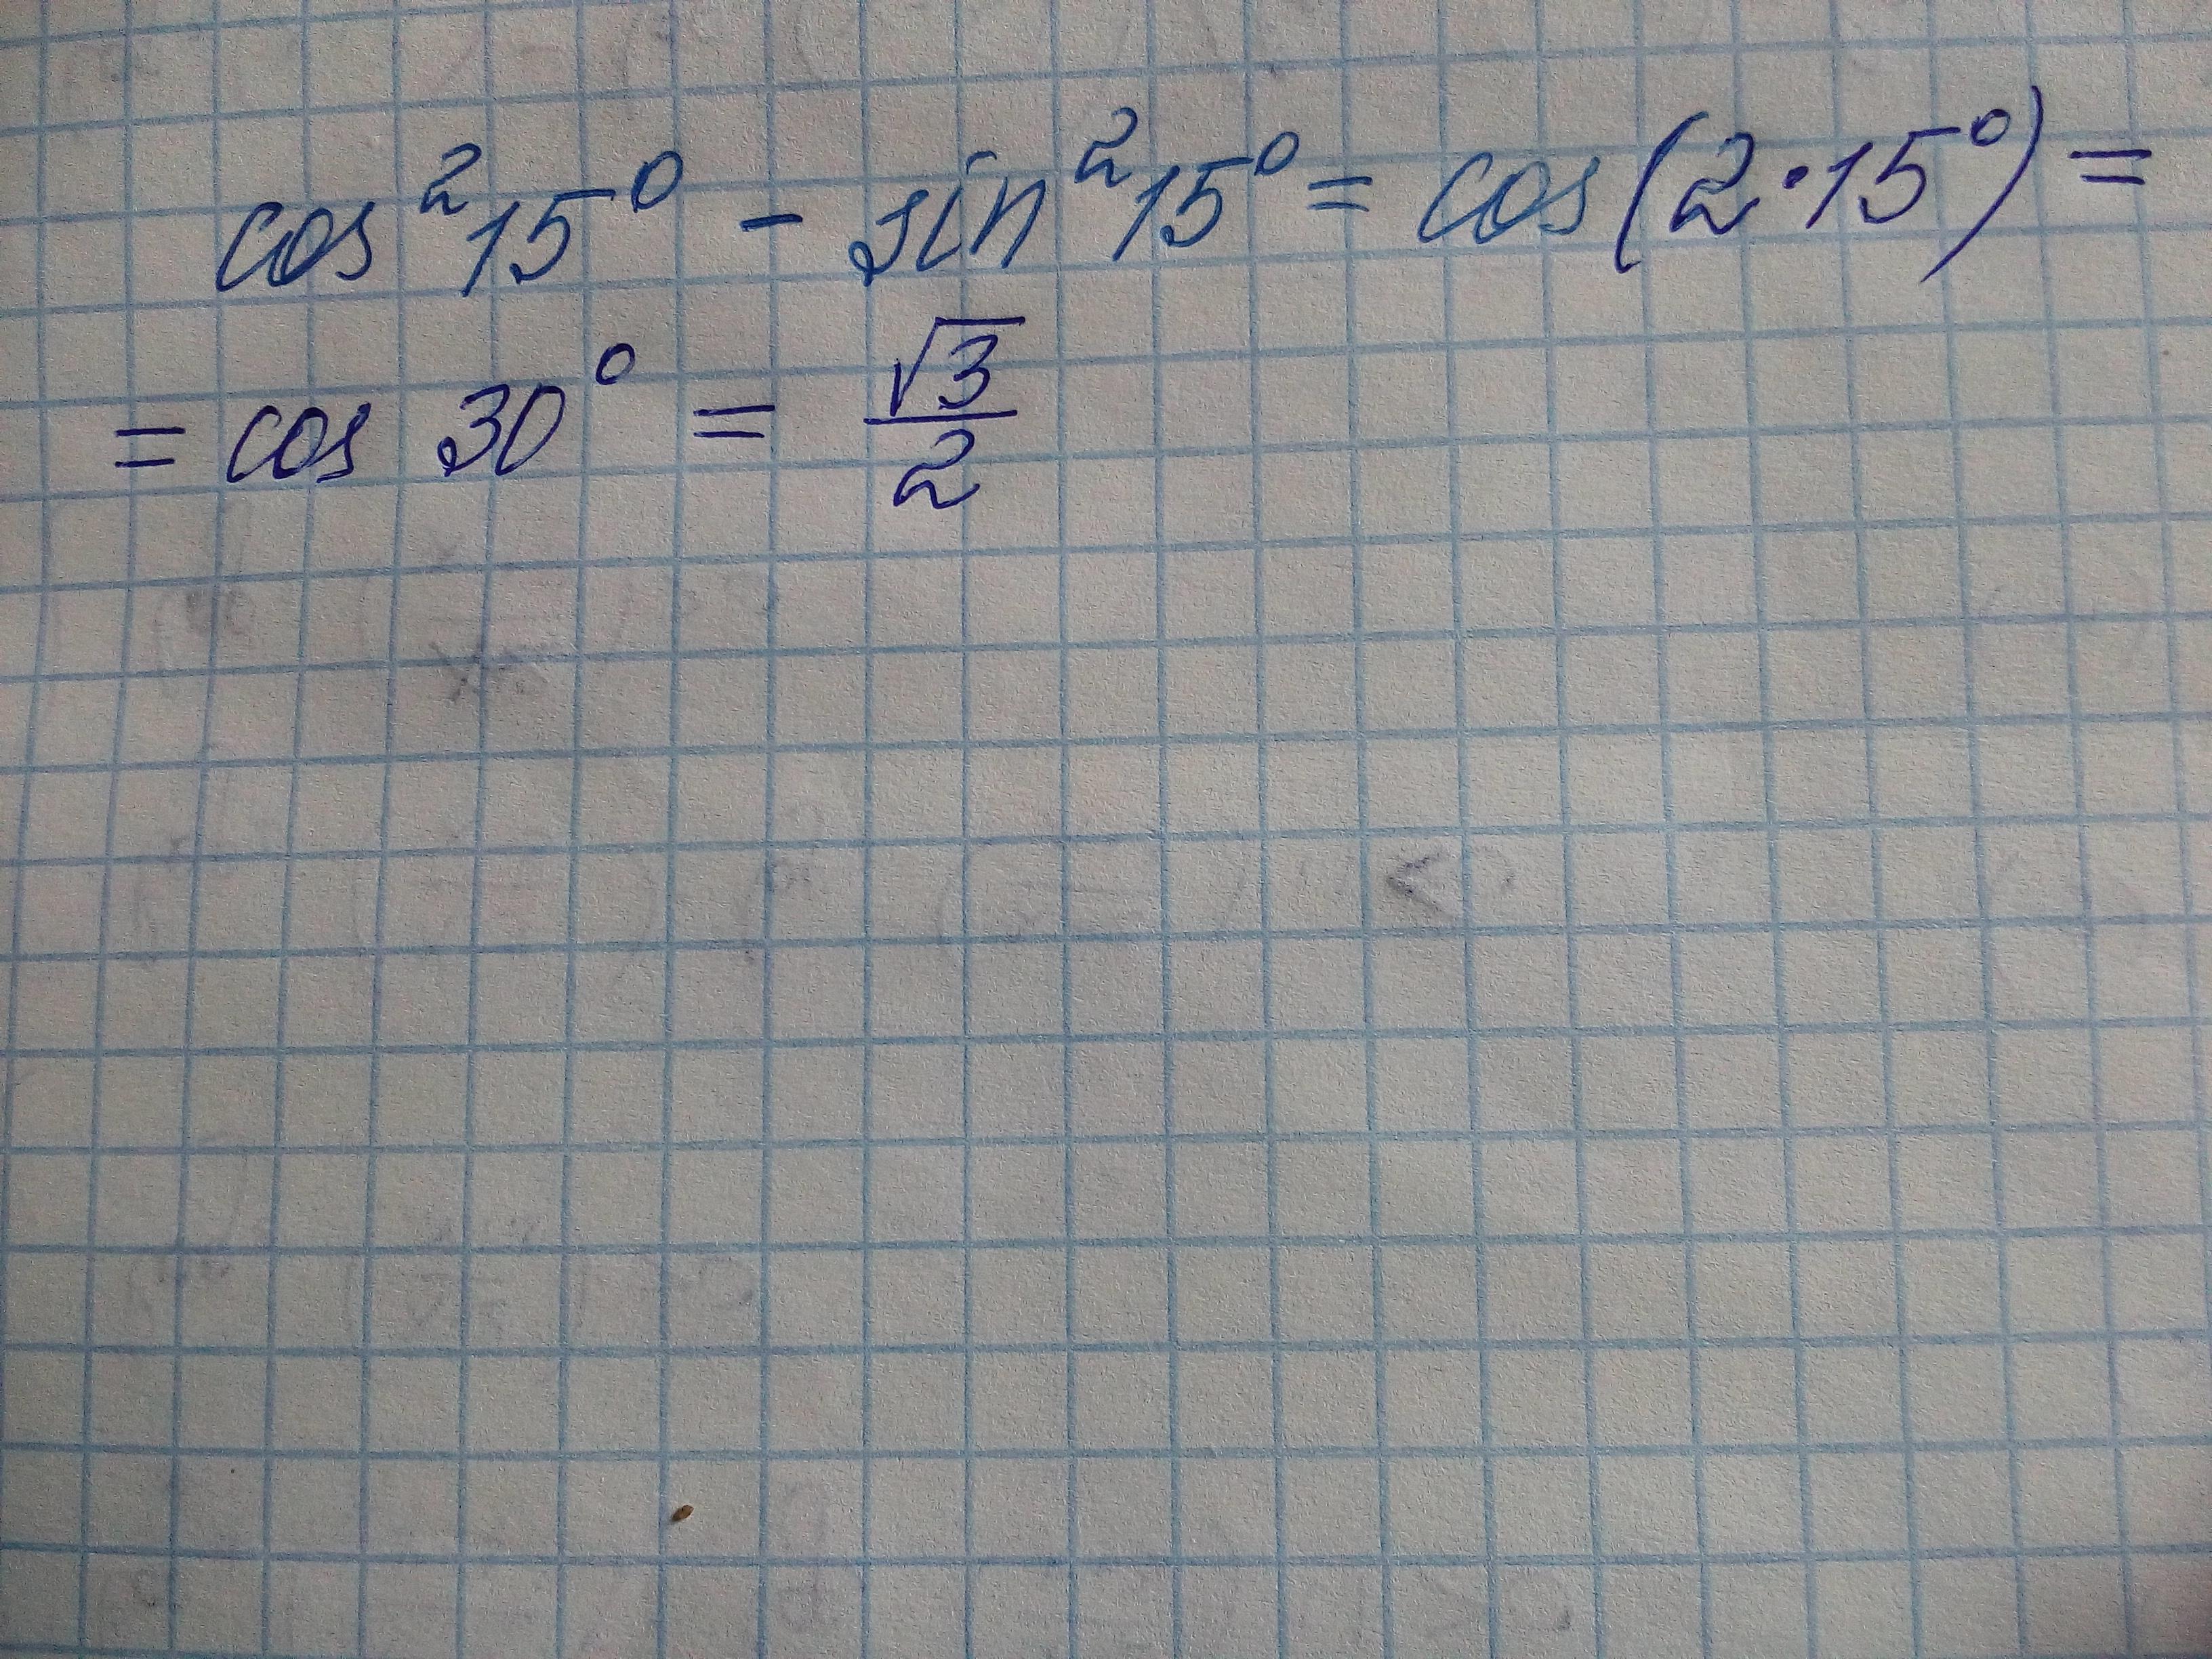 cos²15° - sin²15° = cos(2·15°) =
= cos 30° = √3/2